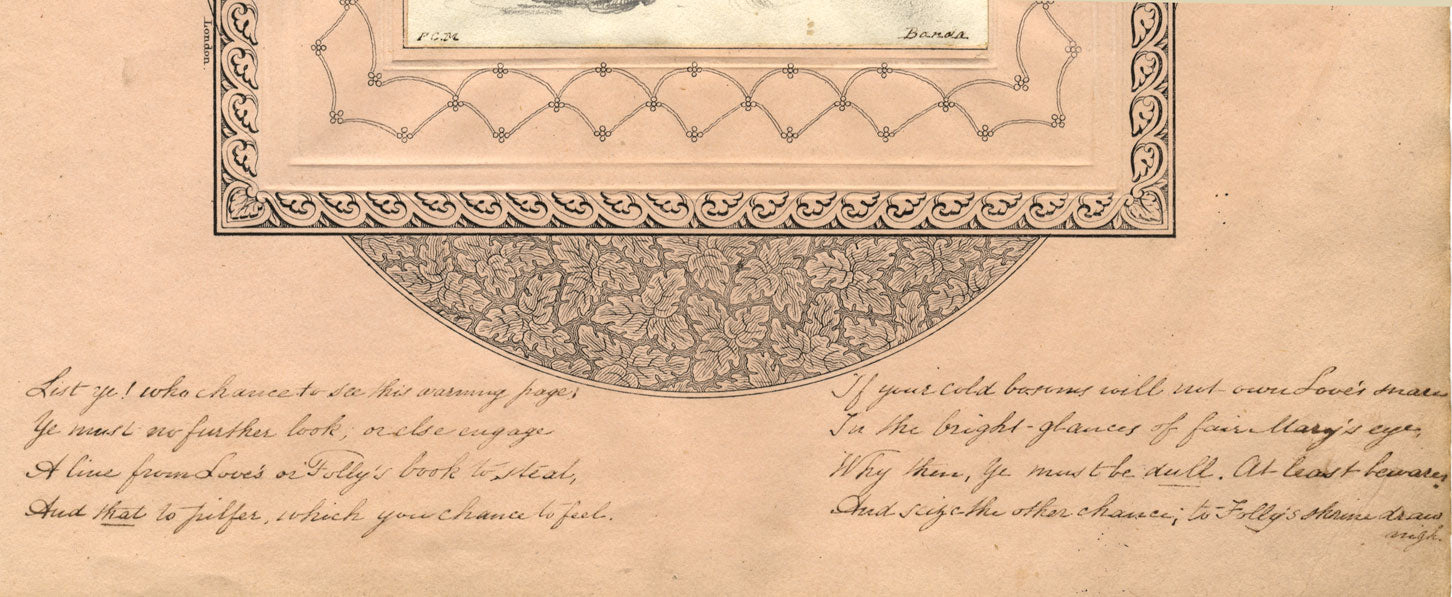 London.
P.C.M
Banda
List ye! who chance to see this warning page;
Ye must no further look; or else engage
A line from Love's or Folly's book to steal,
And that to pilfer, which you chance to feel.
If your cold bosoms will not own Love's snare
In the bright glances of fair Mary's eye,
Why then, Ye must be dull. At least beware,
And seize the other chance; to Folly's shrine draw
nigh.